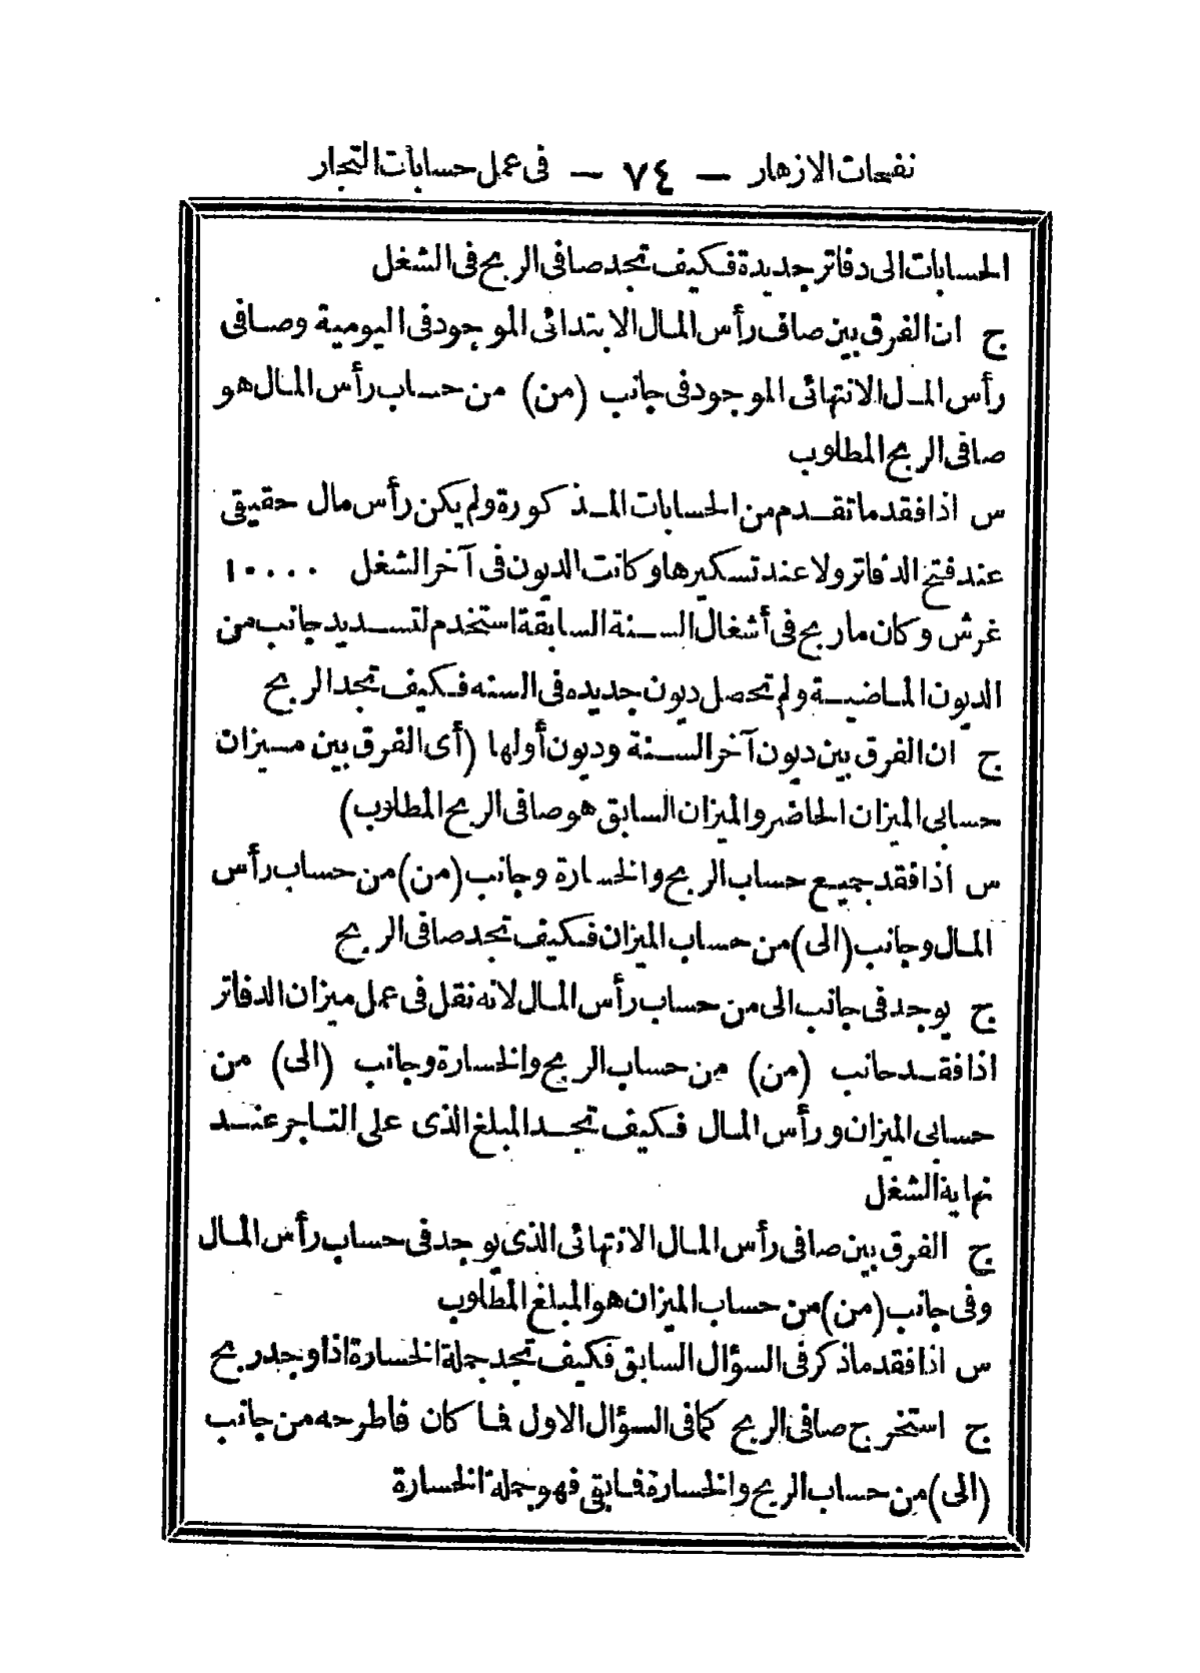 نفحات الازهار — ٧٤ — فى عمل حسابات التجار
الحسابات الى دفاتر جديدة فكيف تجد صافى الربح فى الشغل
ج ان الفرق بين صاف رأس المال الابتدائى الموجود فى اليومية وصافى
رأس المال الانتهائى الموجود فى جانب (من) من حساب رأس المال هو
صافى الربح المطلوب
س اذا فقد ما تقدم من الحسابات المذكورة ولم يكن رأس مال حقيقى
عند فتح الدفاتر ولا عند تسكيرها وكانت الديون فى آخر الشغل ١٠٠٠٠
غرش وكان ما ربح فى أشغال السنة السابقة استخدم لتسديد جانب من
الديون الماضية ولم تحصل ديون جديده فى السنه فكيف تجد الربح
ج ان الفرق بين ديون آخر السنة وديون أولها (أى الفرق بين ميزان
حسابى الميزان الحاضر والميزان السابق هو صافى الربح المطلوب)
س اذا فقد جميع حساب الربح والخسارة وجانب (من) من حساب رأس
المال وجانب (الى) من حساب الميزان فكيف تجد صافى الربح
ج يوجد فى جانب الى من حساب رأس المال لانه نقل فى عمل ميزان الدفاتر
اذا فقد جانب (من) من حساب الربح والخسارة وجانب (الى) من
حسابى الميزان ورأس المال فكيف تجد المبلغ الذى على التاجر عند
نهاية الشغل
ج الفرق بين صافى رأس المال الانتهائى الذى يوجد فى حساب رأس المال
وفى جانب (من) من حساب الميزان هو المبلغ المطلوب
س اذا فقد ما ذكر فى السؤال السابق فكيف تجد جملة الخسارة اذا وجد ربح
ج استخرج صافى الربح كما فى السؤال الاول فما كان فاطرحه من جانب
(الى) من حساب الربح والخسارة فما بقى فهو جملة الخسارة